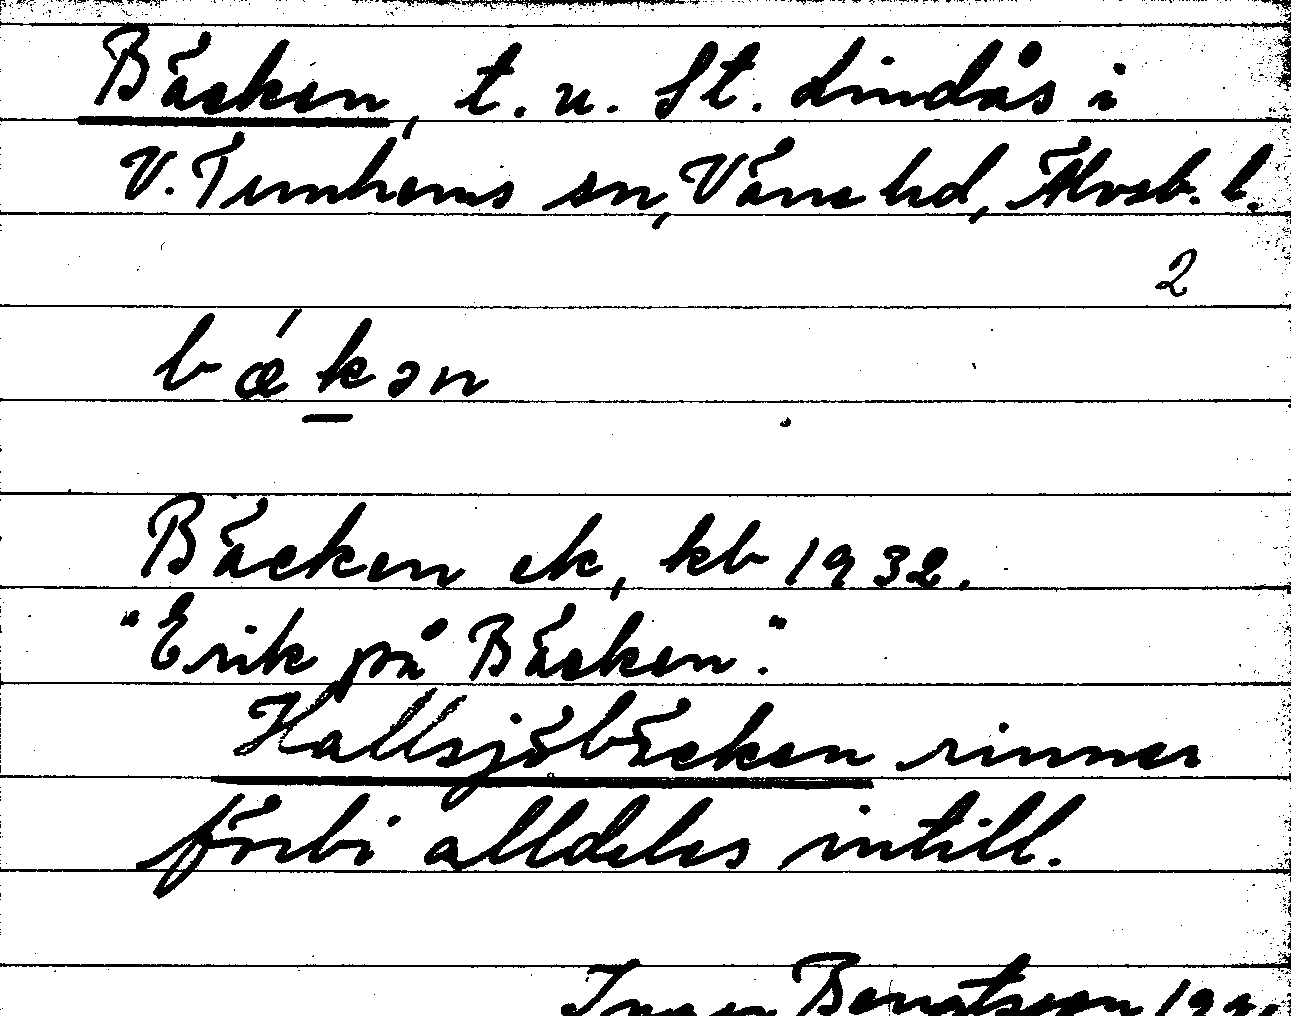 Bäcken, t. u. St. Lindås i
V. Tunhems sn, Väne hd, Älvsb. l.
2
bǽkən
Bäcken ek, kb 1932.
"Erik på Bäcken".
Hallsjöbäcken rinner
förbi alldeles intill.
Bengtsson